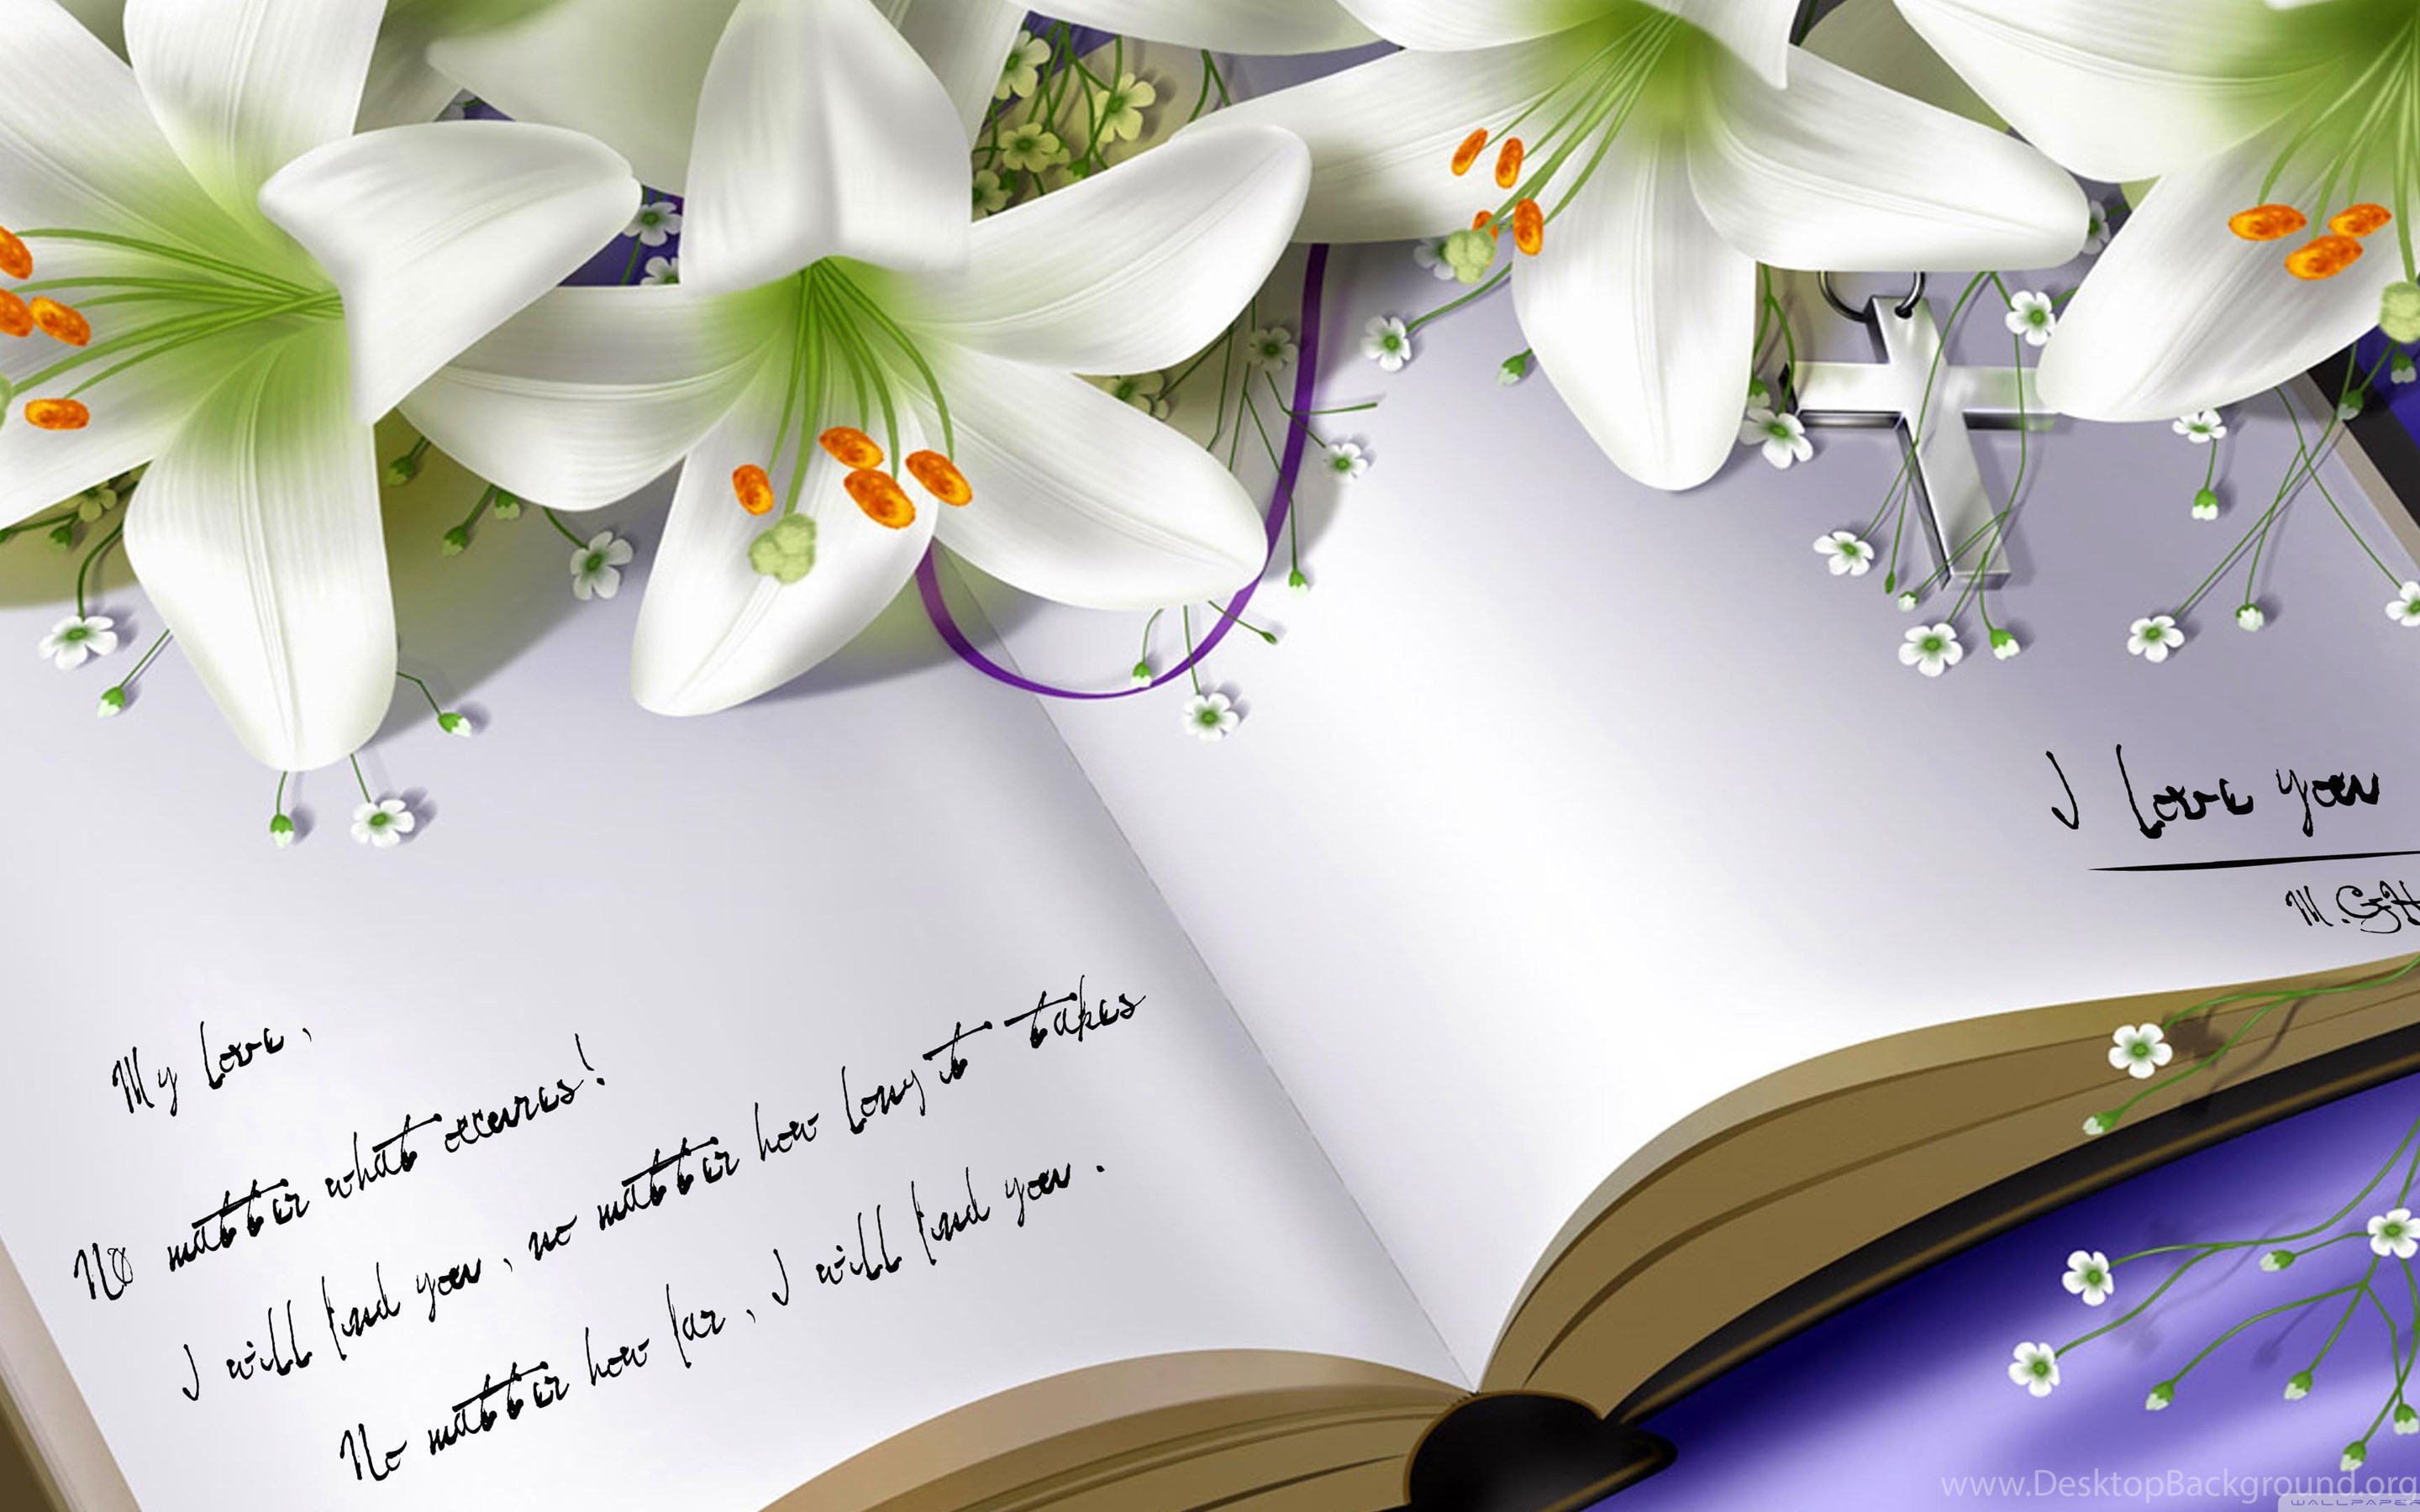 My Love,
No matter what occures!
I will find you, no matter how long to takes
No matter how far, I will find you.
I love you
M.GH
www.DesktopBackground.org
WALLPAPER